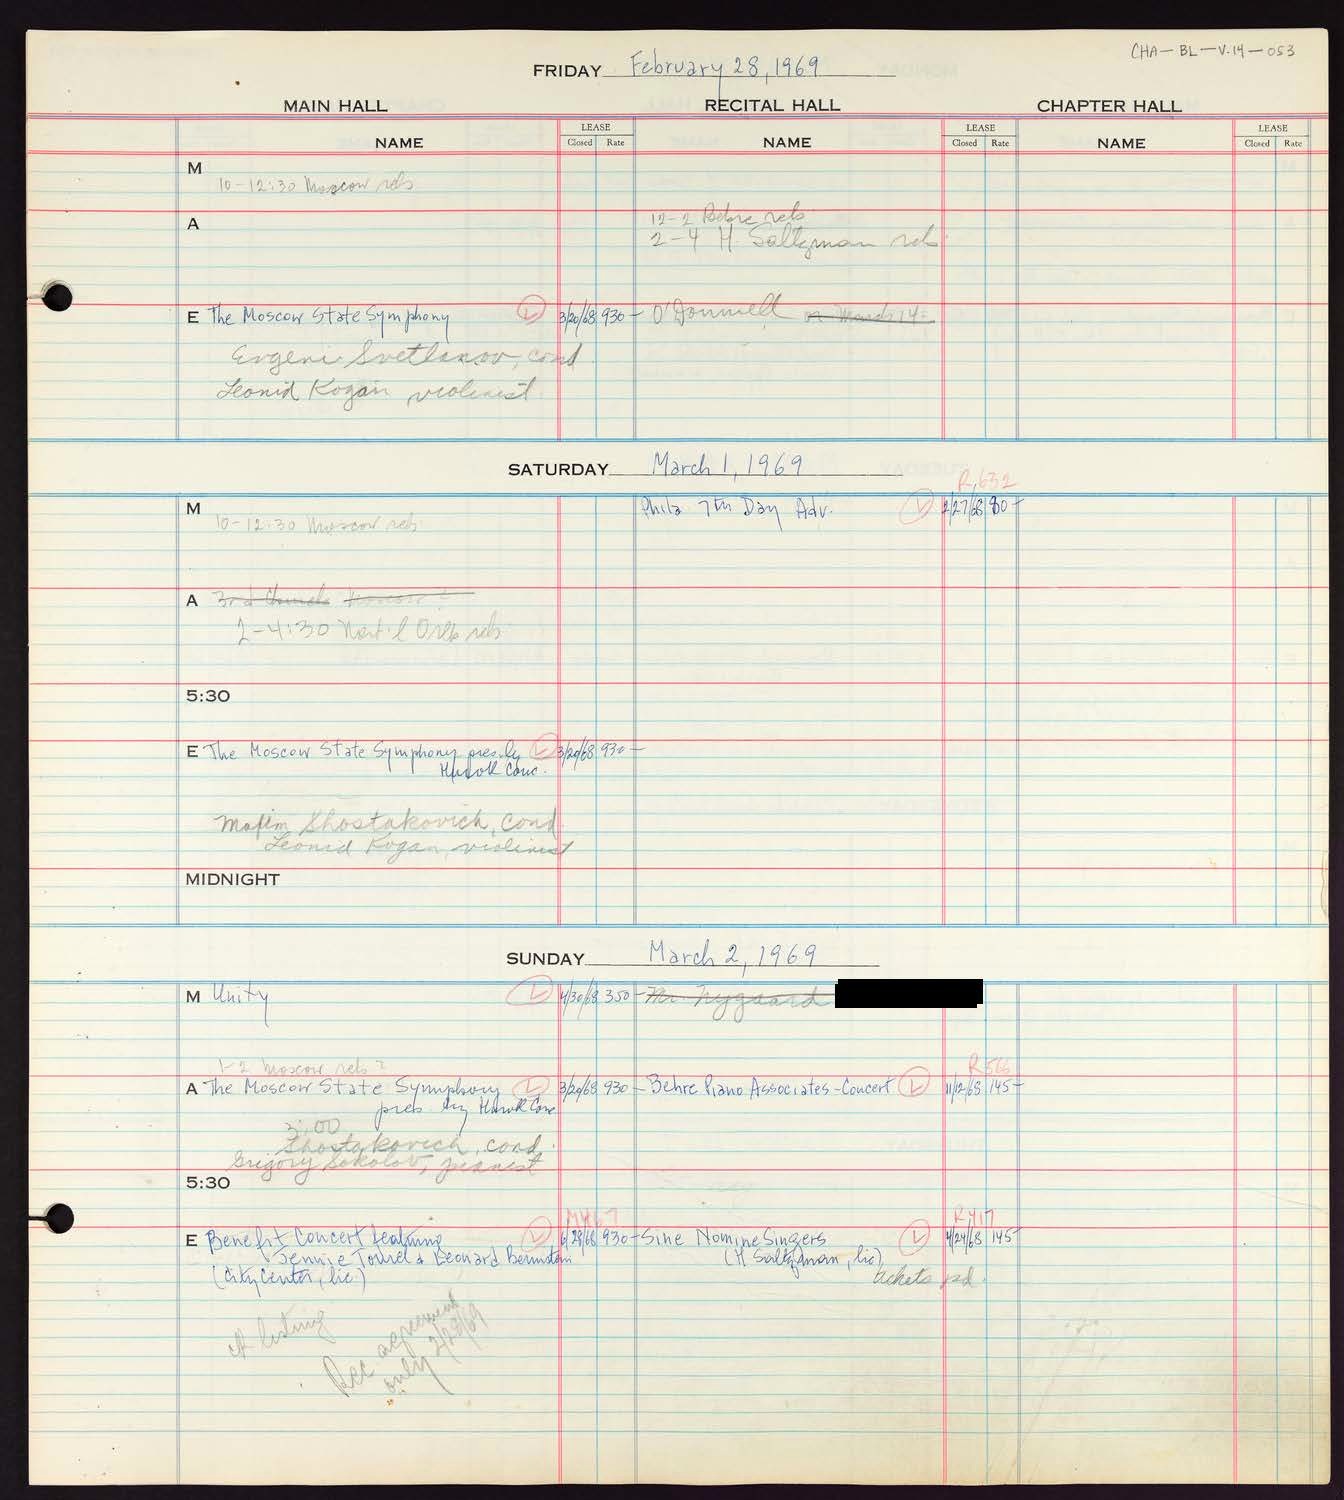 CHA-BL-V.14-053
FRIDAY February 28, 1969
MAIN HALL RECITAL HALL CHAPTER HALL
NAME LEASE Closed Rate NAME LEASE Closed Rate NAME LEASE Closed Rate
M
10-12:30 Moscow reh
A
12-2 Behre reh
2-4 H. Saltzman reh
E The Moscow State Symphony L 3/20/68 930- O'Donnell or March 14
Evgeni Svetlanov, cond
Leonid Kogan violinist
SATURDAY March 1, 1969
R.632
M Phila 7th Day Adv. L 2/27/68 80-
10-12:30 Moscow reh
A 3rd Church Moscow?
2-4:30 Nat'l Orch reh
5:30
E The Moscow State Symphony pres. by L 3/20/68 930-
Hurok Conc.
Maxim Shostakovich, Cond.
Leonid Kogan, violinist
MIDNIGHT
SUNDAY March 2, 1969
M Unity L 4/30/68 350- Mr Nygaard
1-2 Moscow reh?
R566
A The Moscow State Symphony L 3/20/68 930- Behre Piano Associates-Concert L 11/12/68 145-
pres. by Hurok Conc
3:00
Shostakovich, cond.
Grigory Sokolov, pianist
5:30
M467 R417
E Benefit Concert featuring L 6/28/68 930- Sine Nomine Singers L 4/24/68 145-
Jennie Tourel & Leonard Bernstein (H Saltzman, lic)
(City Center, lic.) tickets pd.
listing
Rec agreement
only 2/28/69